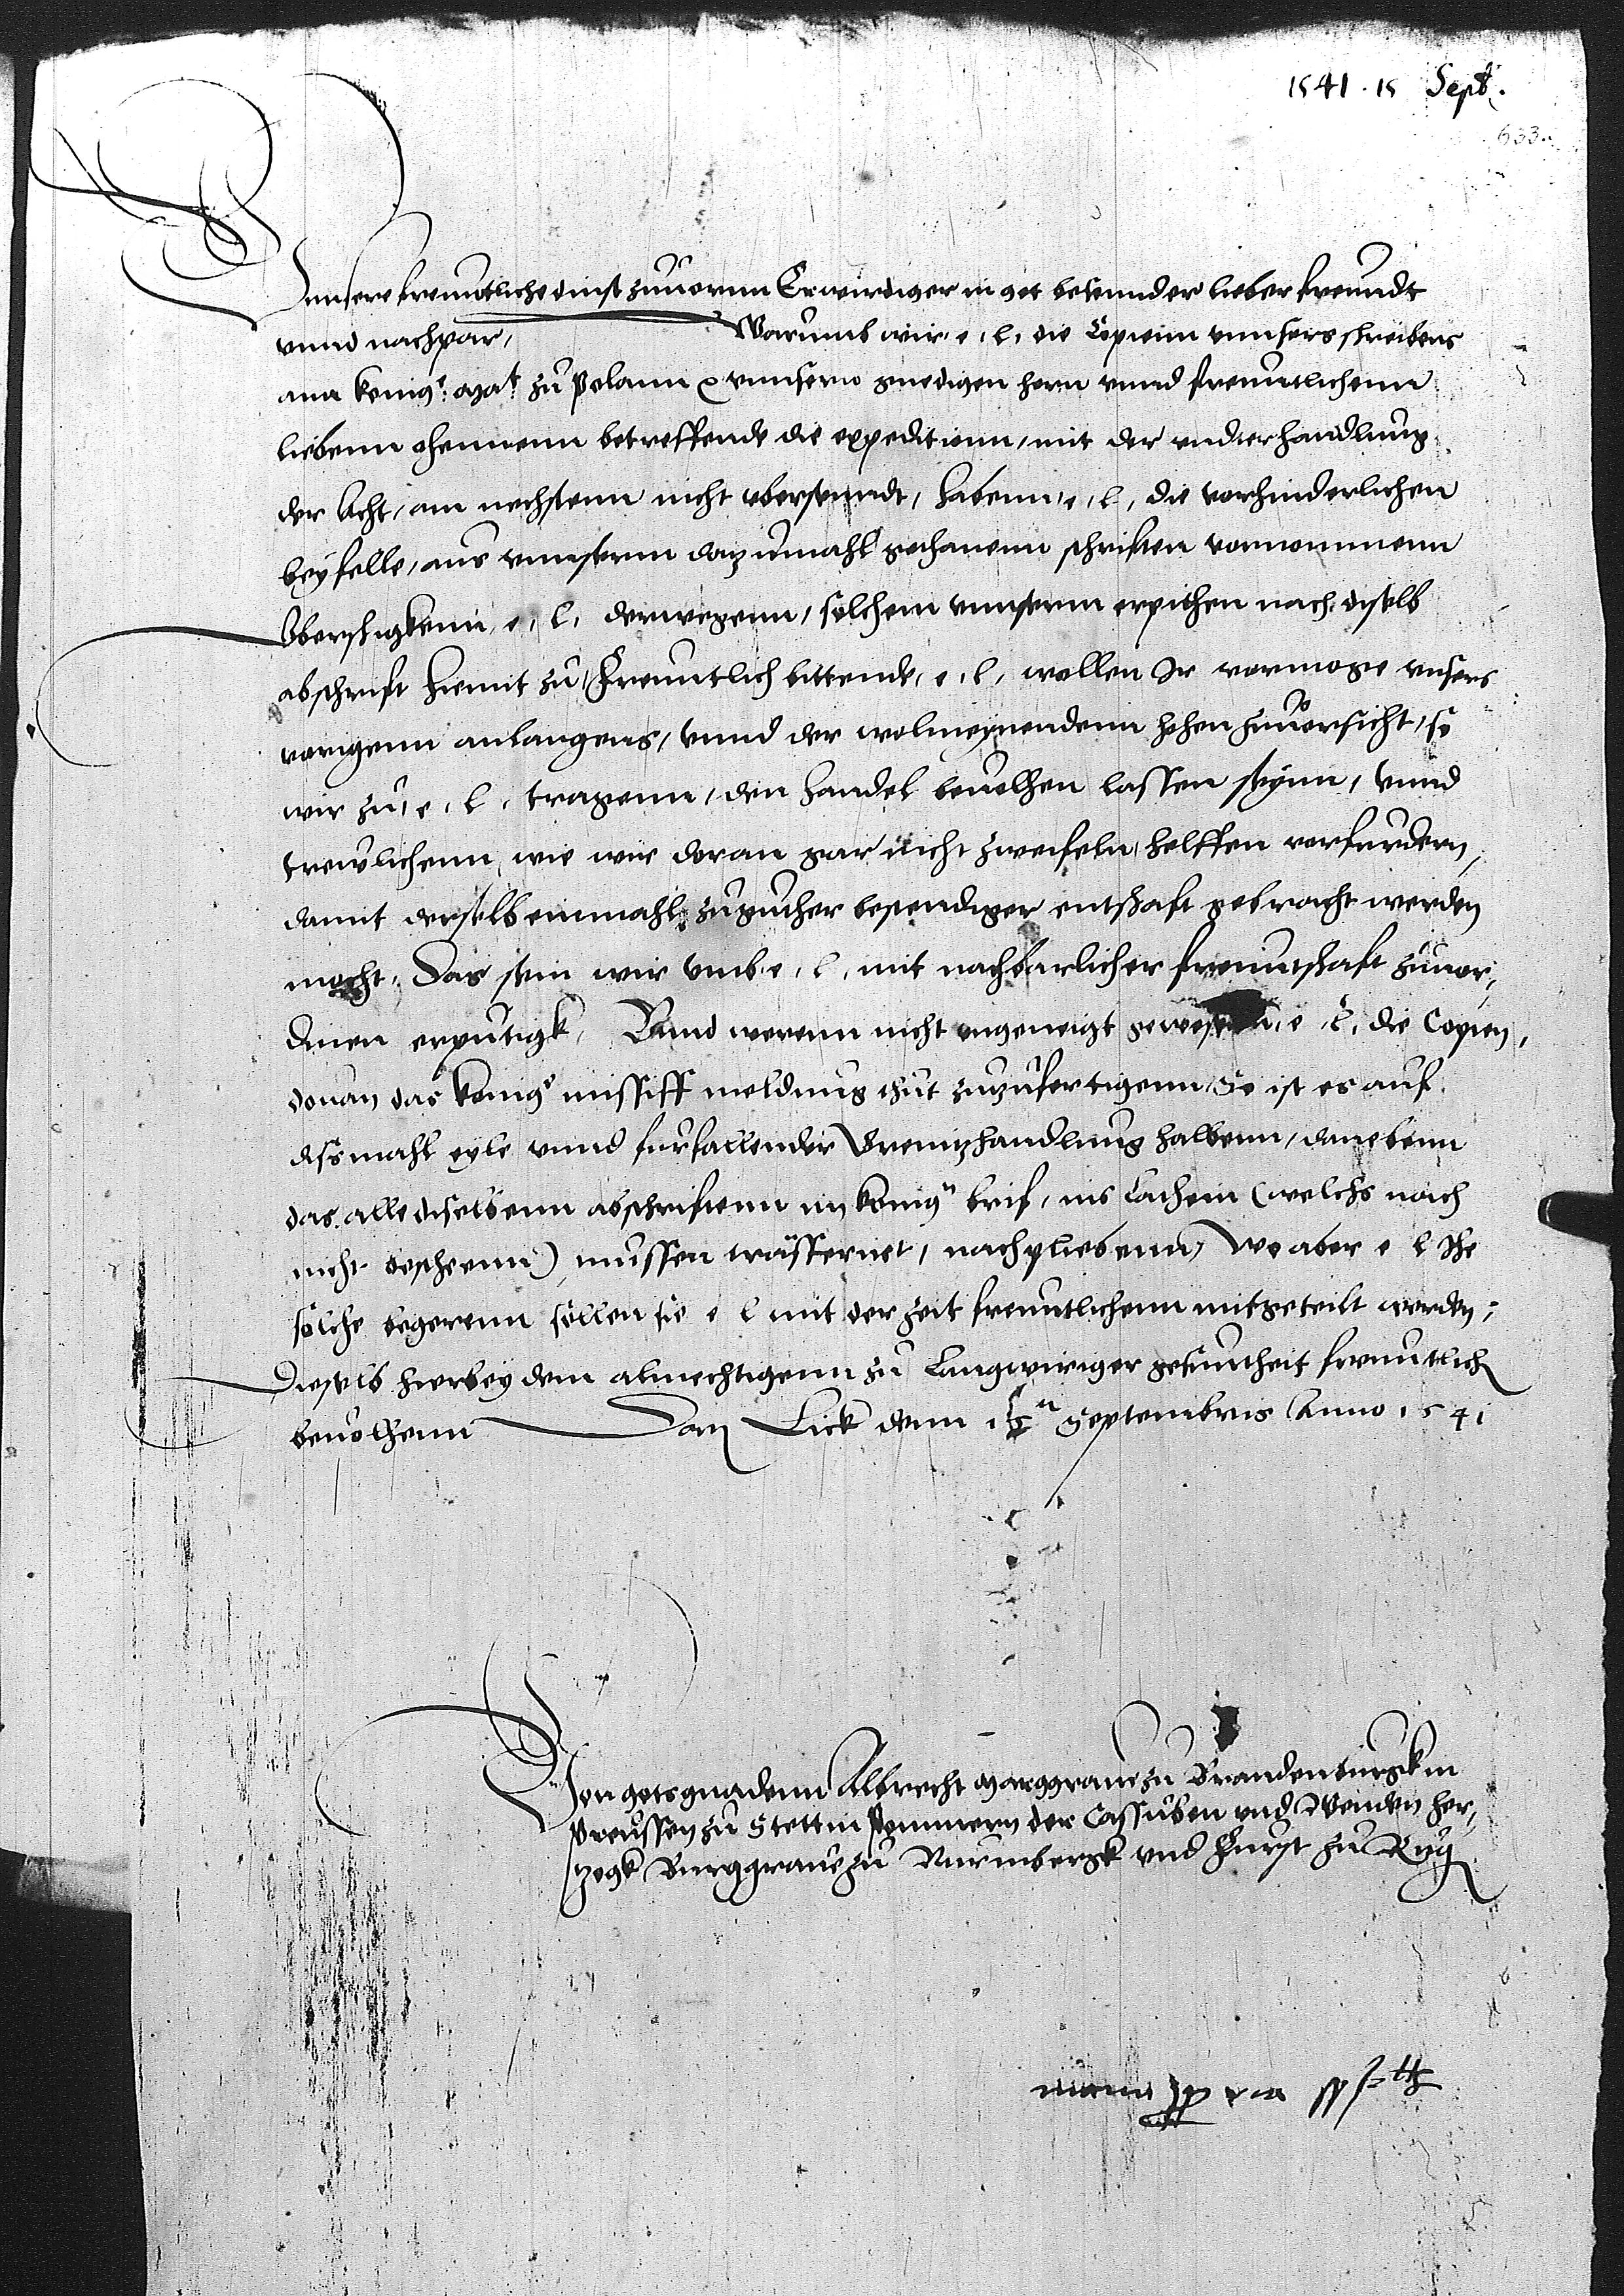 1541. 15 Sept.
633.
Unnsere freuntliche dinst zuuornn Erwirdiger in got besunnder lieber freundt
vnnd nachpar, Warumb wir e, l, die Copienn vnnsers schreibens
ann konigr. Mat. zu Polann vnnsern gnedigen hern vnnd freuntlichenn
liebenn ohemenn betreffende die expeditionn, mit der vnderhandlung
der Acht, am nechstenn nicht vbersanndt, habenn, e, l, die vorhinderlichen
beyfelle, aus vnnsernn dazumahl gethanenn schriften vornommenn
Vberschigkenn, e, l, derwegenn, solchem vnnserm erpithen nach, diselb
abschrift hiemit zu, Freuntlich bittende, e, l, wollen Ir vormoge vnsers
vorigenn anlangens, vnnd der wolmeynendenn hohen zuuorsicht, so
wir zu, e, l, tragenn, den handel beuolhen lassen seynn, vnnd
treulichenn, wie wir doran gar nicht zweifeln, helffen vorfurdern,
damit derselb einmahl zu guther bestendiger entschaft gebracht werden
mocht. Das sein wir vmb e, l, mit nachbarlicher freuntschaft zuuor,
dinen erputigk, Vnnd werenn nicht vngeneigt gewesenn, e, l, die Copien,
douan das konigs missiff meldung thut zuzufertigenn, So ist es auf
dismahl eyle vnnd furfallender Grenitzhandlung halbenn, danebenn
das alle diselbenn abschriftenn im konign brif, ins Latein (welchs noch
nicht bescheenn) mussen transferirt, nachpliebenn, Wo aber e l Ihe
solche begerenn sollen sie e l mit der zeit freuntlichenn mitgeteilt werden,
Dieselb hierbey dem almechtigenn zu Langwiriger gesuntheit freuntlich
beuolhenn Datum Lick denn 15n Septembris Anno 1541
Von gots gnadenn Albrecht Marggraue zu Brandenburgk in
Preussen zu Stettin Pommern der Cassuben vnd Wenden her,
tzogk Burggraue zu Nurmbergk vnd Furst zu Rugen
manu ppria sst